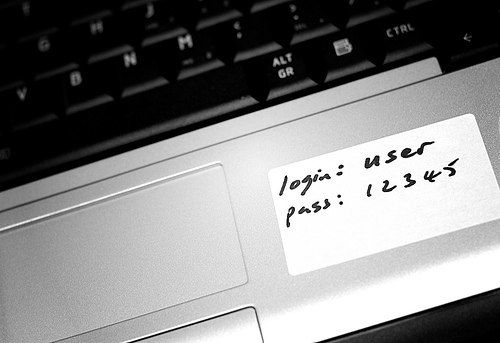 T J
G H
V B N M ALT GR CTRL
login: user
pass: 12345